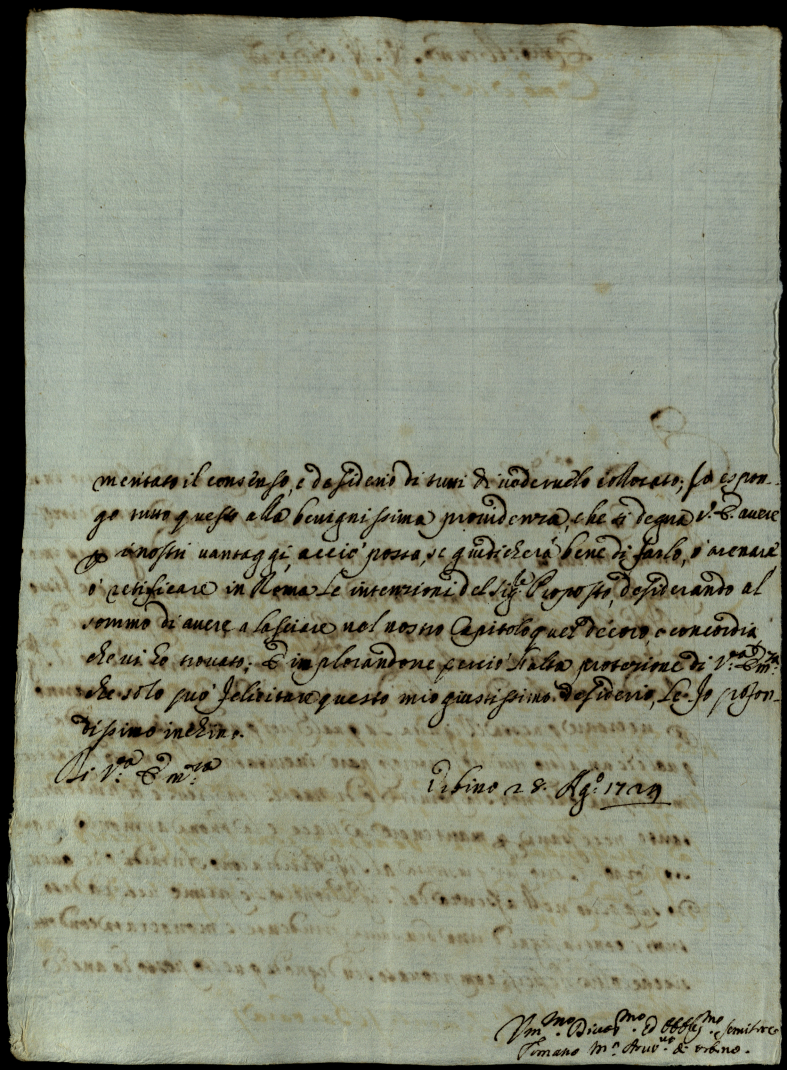 mentato il consenso, e desiderio di tutti di vedervelo collocato; Io espon-
go tutto questo alla benignissima providenza, che si degna V. E. avere
p i nostri vantaggi, acciò possa, se giudicherà bene di farlo, ò arenare
ò retificare in Roma le intenzioni del Sig.r Proposto, desiderando al
sommo di avere a lasciare nel nostro Capitolo quel decoro, e concordia
che vi hò trovato; Ed implorandone perciò l'alta protezione di V.ra Em.za
che solo può felicitare questo mio giustissimo desiderio, Le fo profon-
dissimo inchino.
Di V.ra Em.za
Urbino 28. Ag.o 1724
Um.mo Divot.mo ed Obblig.mo servitore
Tomaso M.a Arciv.o di Urbino.